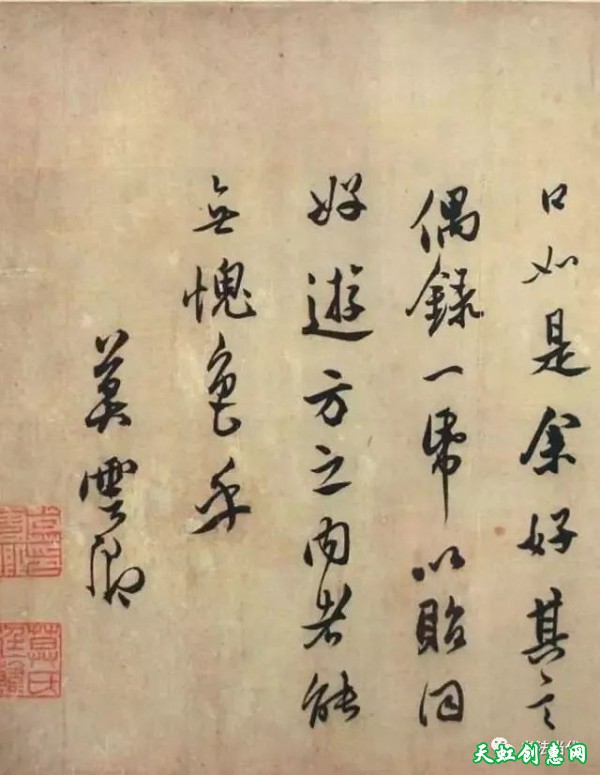 口如是余好其言
偶錄一帋以貽同
好遊方之內者能
無愧色乎
莫雲卿
天虹创惠网